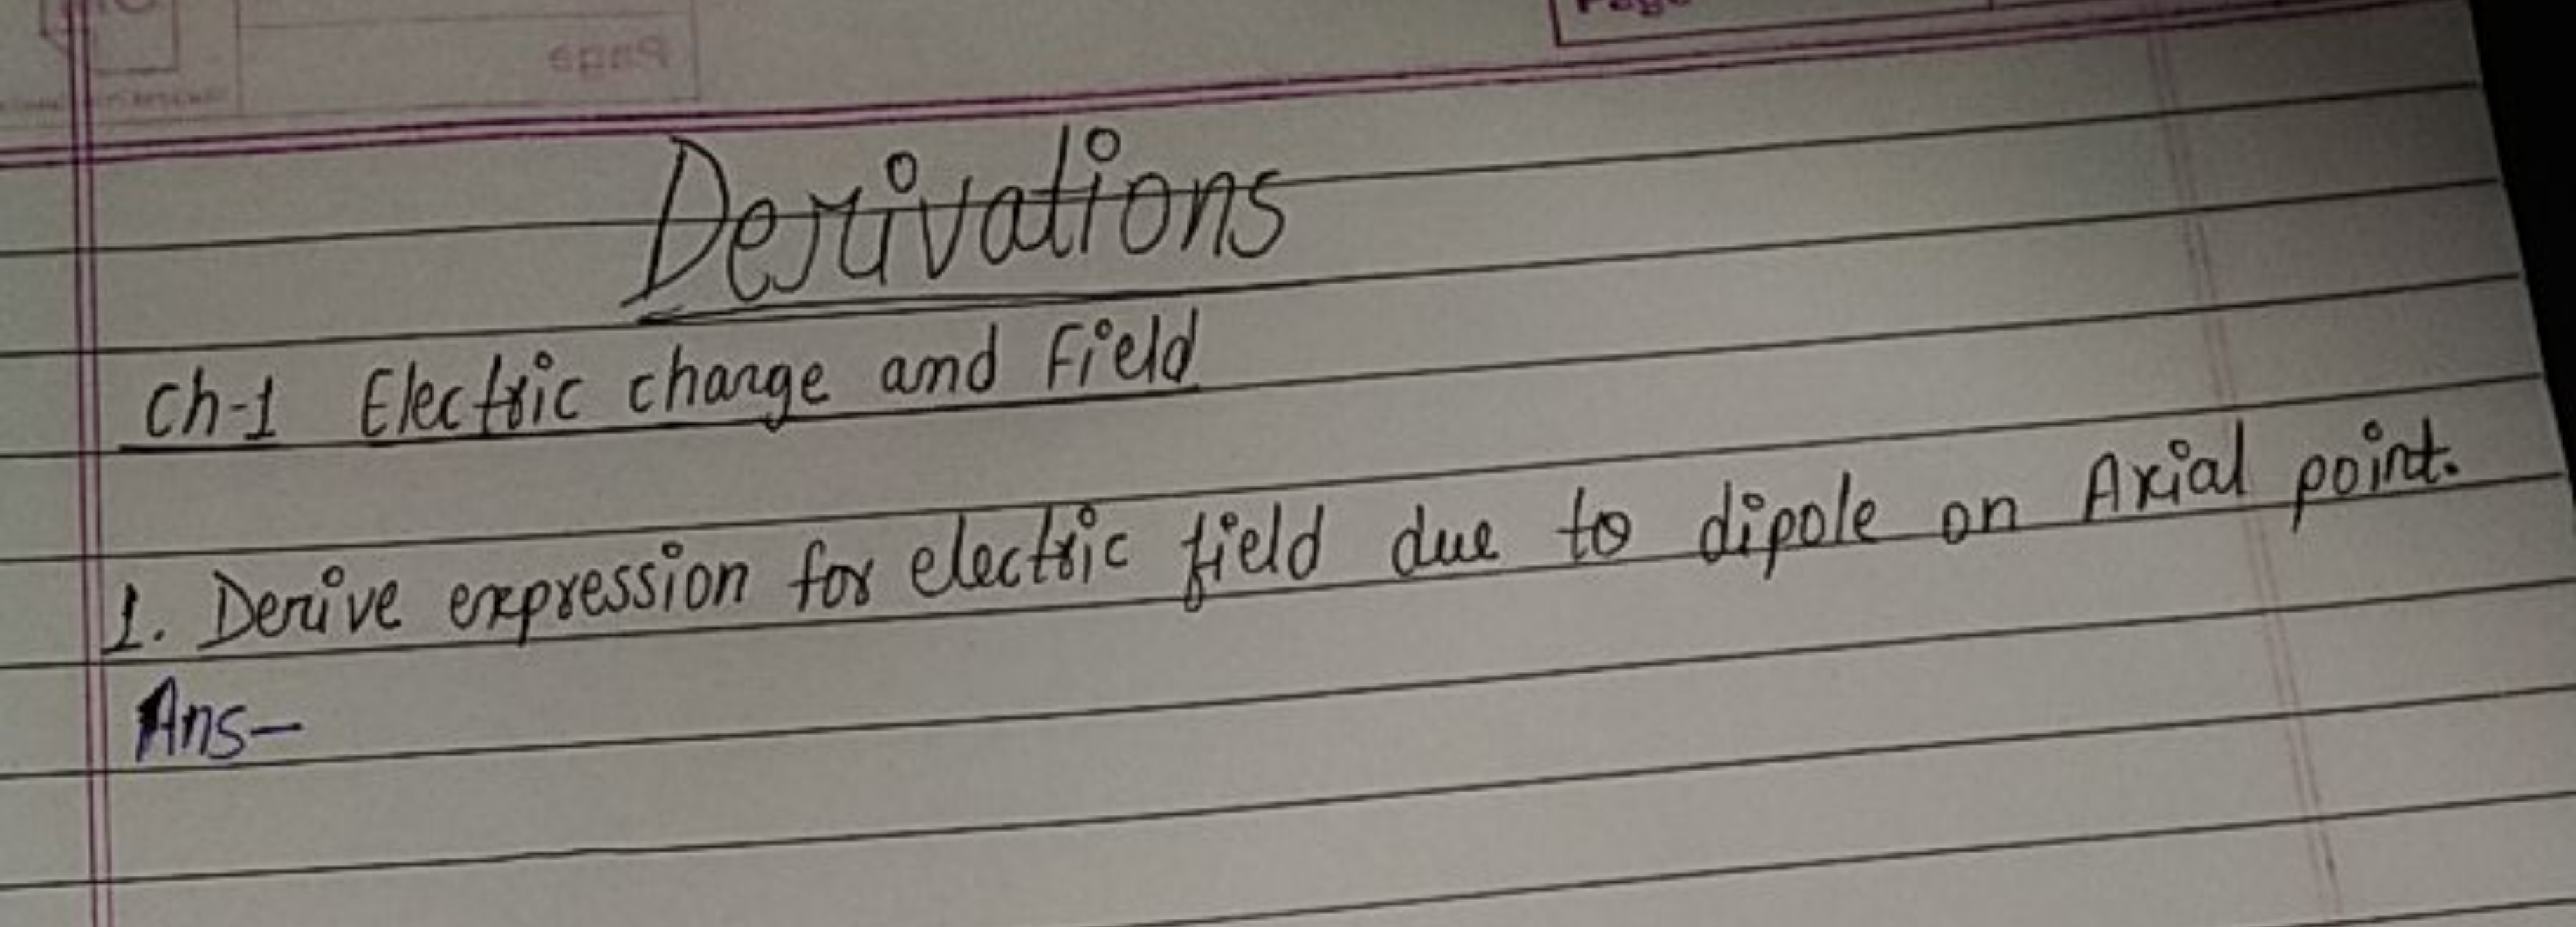 Page
Derivations
Ch-1 Electric charge and Field
1. Derive expression for electric field due to dipole on Axial point.
Ans-